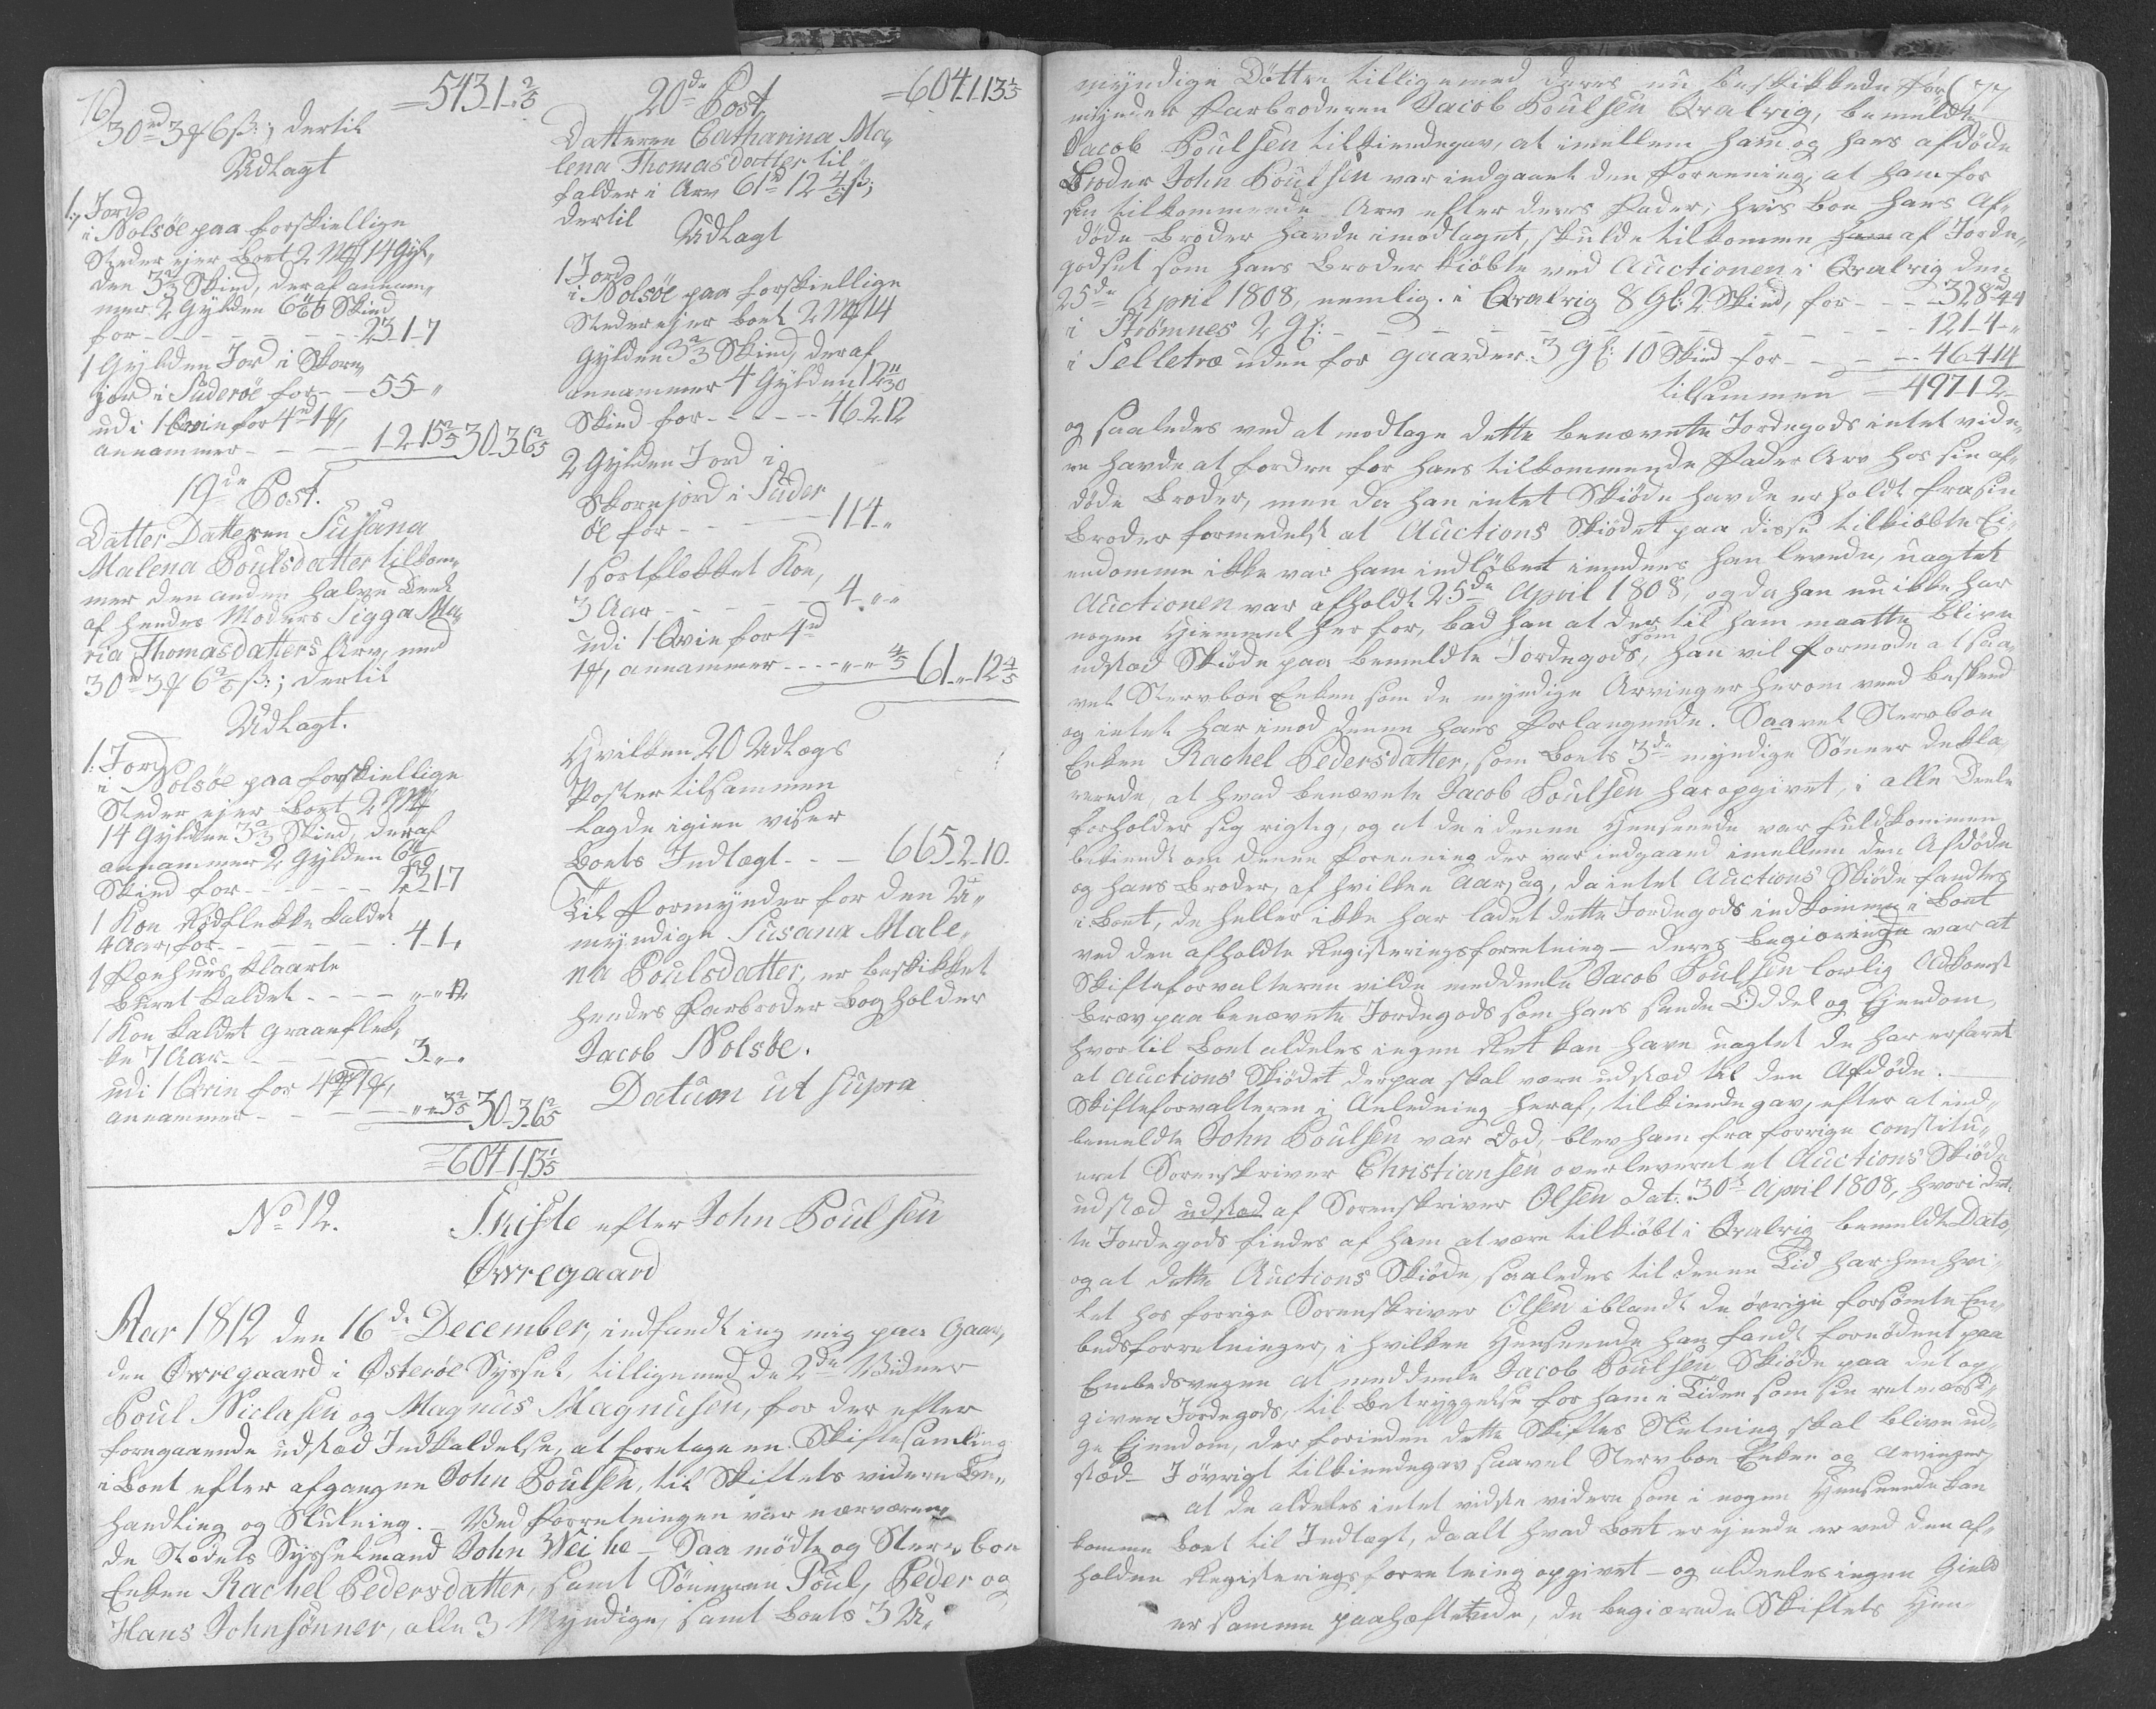 76)
= 543-1-"2/5
30rd 3 mk 6 ß:; dertil
Udlagt
1:, Jord
i Nolsöe paa forskiellige
Steder ejer Boet 2 Mk 14 Gyl„
den 3 2/3 Skind, deraf annam„
mer 2 Gylden 6 Skind
for - - - - - - 23-1-7
1 Gylden Jord i Skorn„
jord i Süderöe for - - 55-"
udi 1 Qvie for 4rd 1 mk,
annammer - - - - 1-2-15 2/5 30-3-6 2/5
19de Post.
Datter Datteren Susana
Malena Poulsdatter tilkom„
mer den anden halve Deel
af hendes Moders Sigga Ma„
ria Thomasdatters Arv, med
30rd 3 mk 6 2/5 ß:; dertil
Udlagt.
1: Jord
i Nolsöe paa forskiellige
Steder ejer Boet 2 Mk
14 Gylden 3 2/3 Skind, deraf
annammer 2 Gylden 6
Skind for - - - - - - 23-1-7
1 Koe Rödflekke kaldet
4 Aar, for - - - - - 4-1-"
1 Pænhuus Klaarte
Büret kaldet - - - - "-"-12
1 Koe kaldet Graaeflek„
ke 7 Aar - - - - 3-"-"
udi 1 Qvie for 4rd 1 mk,
annammer - - - - "-"-3 2/5 30-3-6 2/5
= 604-1-13 1/5
20de Post
= 604-1-13 1/5
Datteren Catharina Ma„
lena Thomasdatter til„
falder i Arv 61rd 12 4/5 ß;
dertil
Udlagt
1 Jord
i Nolsöe paa forskiellige
Steder ejer Boet 2 Mk 14
Gylden 3 2/3 Skind, deraf
annammer 4 Gylden 12 11/30
Skind for - - - - 46-2-12
2 Gylden Jord i
Skornjord i Süder
öe for - - - - 114-"
1 sortflekket Koe,
3 Aar - - - - - 4-"-"
udi 1 Qvie for 4rd
1 mk, annammer - - - - "-"-4/5 61-"-12 4/5
Hvilken 20 Udlægs
Poster tilsammen
lagde igien viser
Boets Indtægt - - - 665-2-10.
Til Formynder for den U„
myndige Susana Male„
na Poulsdatter, er beskikket
hendes Farbroder Bogholder
Jacob Nolsöe.
Datum ut supra
No 12. Skifte efter John Poulsen
Øvregaard
Aar 1812 den 16de December, indfandt ieg mig paa Gaar„
den Øvregaard i Østeröe Syssel, tilligemed de 2de Vidner
Poul Niclasen og Magnus Magnusen, for der efter
foregaaende udstæd Indkaldelse, at foretage en Skiftesamling
i Boet efter afgangne John Poulsen, til Skiftets videre Be„
handling og Slutning. - Ved Forretningen var nærværen„
de Stedets Sysselmand John Weihe - Saa mödte og Stervboe
Enken Rachel Pedersdatter, samt Sönnerne Poul, Peder og
Hans Johnsönner, alle 3 Myndige, samt Boets 3 U„
(77
myndige Döttre tilligemed deres nu beskikkede For„
mynder Farbroderen Jacob Poulsen Qvalvig, bemeldte
Jacob Poulsen tilkiendegav, at imellem ham og hans afdöde
Broder John Poulsen var indgaaet den Foreening, at ham for
sin tilkommende Arv efter deres Fader, hvis Boe hans Af„
döde Broder havde imodtaget, skulde tilkomme ham af Jorde„
godset som hans Broder kiöbte ved Auctionen i Qvalvig den
25de April 1808, nemlig. i Qvalvig 8 Gl: 2 Skind, for - - - 328rd-44
i Strömnes 2 Gl: - - - - - - - - - - 121-4-"
i Selletræ uden for gaarder. 3 Gl: 10 Skind for - - - 46-4-14
tilsammen = 497-1-2-
og saaledes ved at modtage dette benævnte Jordegods intet vide„
re havde at fordre for hans tilkommende Fader Arv hos sin af„
döde Broder, men da han intet Skiöde havde erholdt fra sin
Broder formedelst at Auctions Skiödet paa disse tilkiöbte Ei„
endomme ikke var ham indlöbet imedens han levede, uagtet
Auctionen var afholdt 25de April 1808, og da han nu ikke har
nogen Hiemmel herfor, bad han at der til ham maatte blive
udstæd Skiöde paa bemeldte Jordegods, som han vil formode at saa„
vel Stervboe Enken som de myndige Arvinger herom veed beskeed
og intet har imod denne hans Forlangende. Saavel Stervboe
Enken Rachel Pedersdatter, som Boets 3de myndige Sönner dekla„
rerede, at hvad benævnte Jacob Poulsen har opgivet, i alle Deele
forholder sig rigtig, og at de i denne Henseende var fuldkommen
bekiendt om denne Foreening der var indgaaed imellem den Afdöde
og hans Broder, af hvilken Aarsag, da intet Auctions Skiöde fandtes
i Boet, de heller ikke har ladet dette Jordegods indkomme i Boet
ved den afholdte Registeringsforretning - deres Begiæring var at
Skifteforvalteren vilde meddeele Jacob Poulsen lovlig Adkomst
Brev paa benævnte Jordegods som hans sande Oddel og Ejendom,
hvortil Boet aldeles ingen Ret kan have uagtet de har erfaret
at Auctions Skiödet derpaa skal være udstæd til den Afdöde. -
Skifteforvalteren i Anledning heraf, tilkiendegav, efter at ind„
bemeldte John Poulsen var död, blev ham fra forrige constitu„
eret Sorenskriver Christiansen overleveret et Auctions Skiöde
udstæd udstæd af Sorenskriver Olsen dat. 30te April 1808, hvori det„
te Jordegods findes af ham at være tilkiöbt i Qvalvig bemeldte Dato,
og at dette Auctions Skiöde, saaledes til denne Tid har henhvi„
let hos forrige Sorenskriver Olsen iblandt de övrige forsömte Em„
bedsforretninger, i hvilken Henseende han fandt fornödent paa
Embedsvegne at meddeele Jacob Poulsen Skiöde paa det op„
givne Jordegods, til Betryggelse for ham i Tiden som sin retmæssi„
ge Ejendom, der forinden dette Skiftes Slutning skal blive ud„
stæd - I övrigt tilkiendegav saavel Stervboe Enken og Arvinger,
at de aldeles intet vidste videre som i nogen Henseende kan
komme Boet til Indtægt, da alt hvad Boet er ejende er ved den af„
holdne Registeringsforretning opgivet - og aldeeles ingen Gield
er samme paahæftende, de begiærede Skiftets Hen„